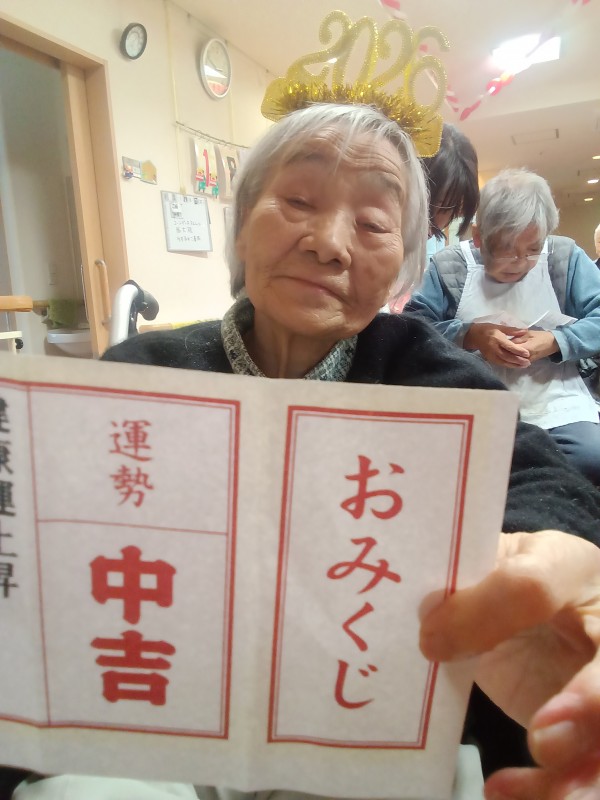 2026
おみくじ
運勢
中吉
健康運上昇